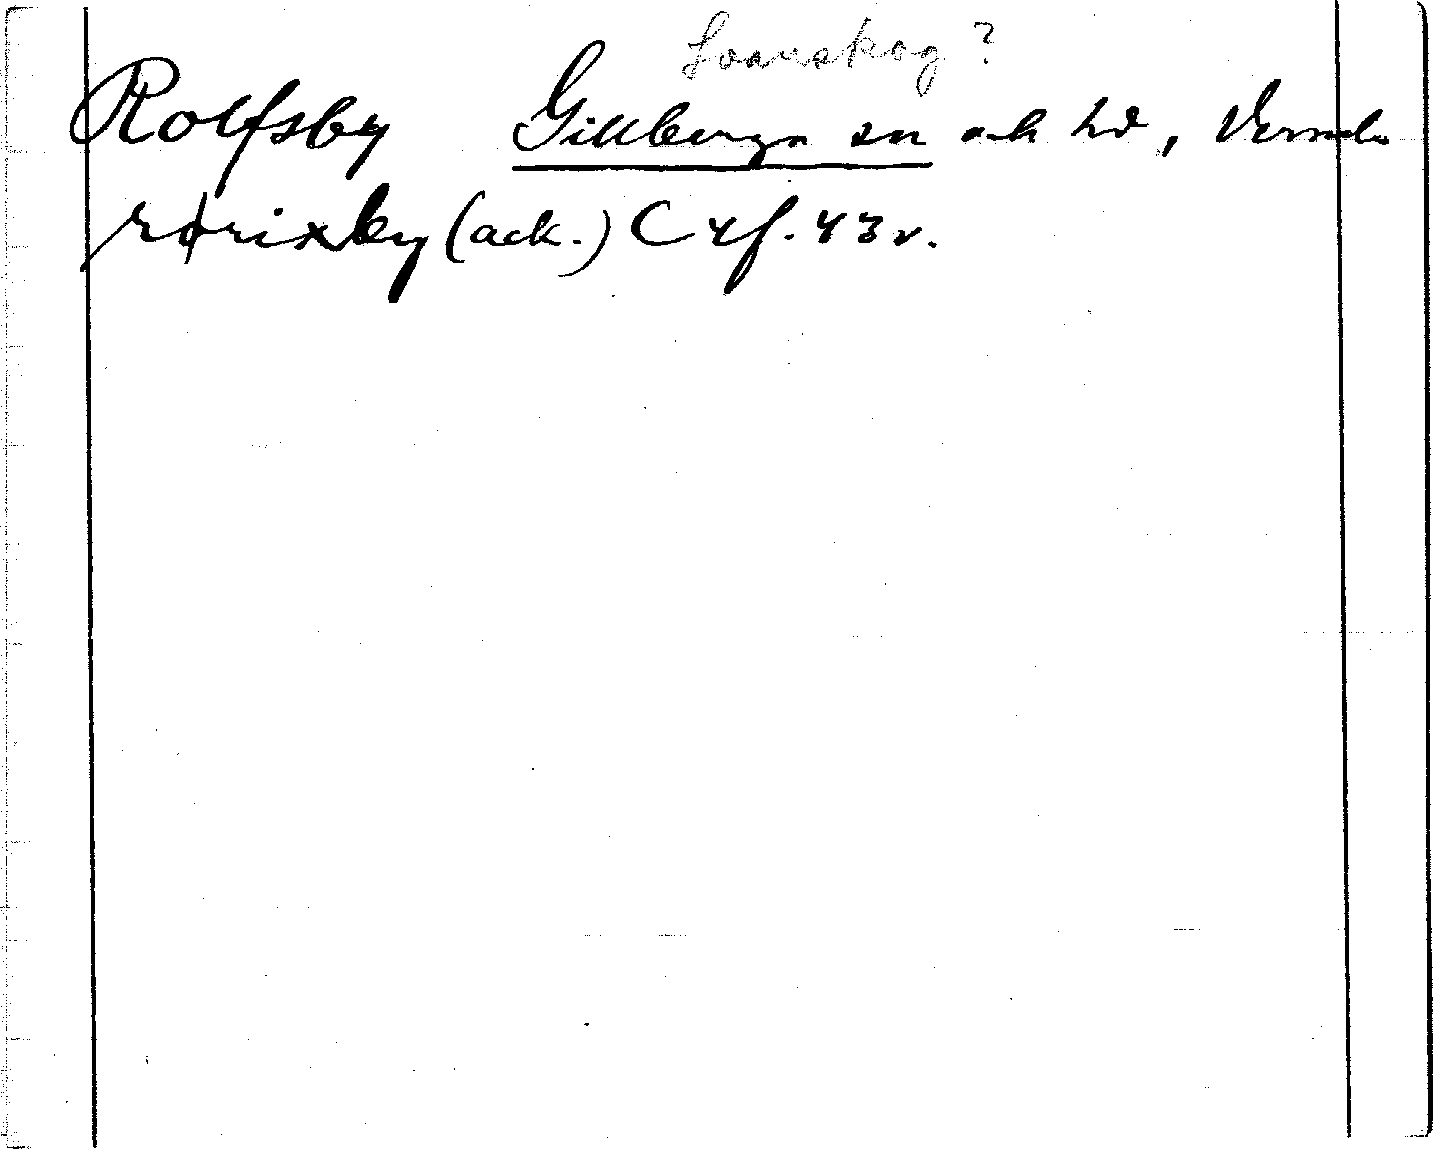 Svanskog?
Rolfsby Gillbergа sn och hd, Värml.
rørixby (ack.) C xf. 43 v.